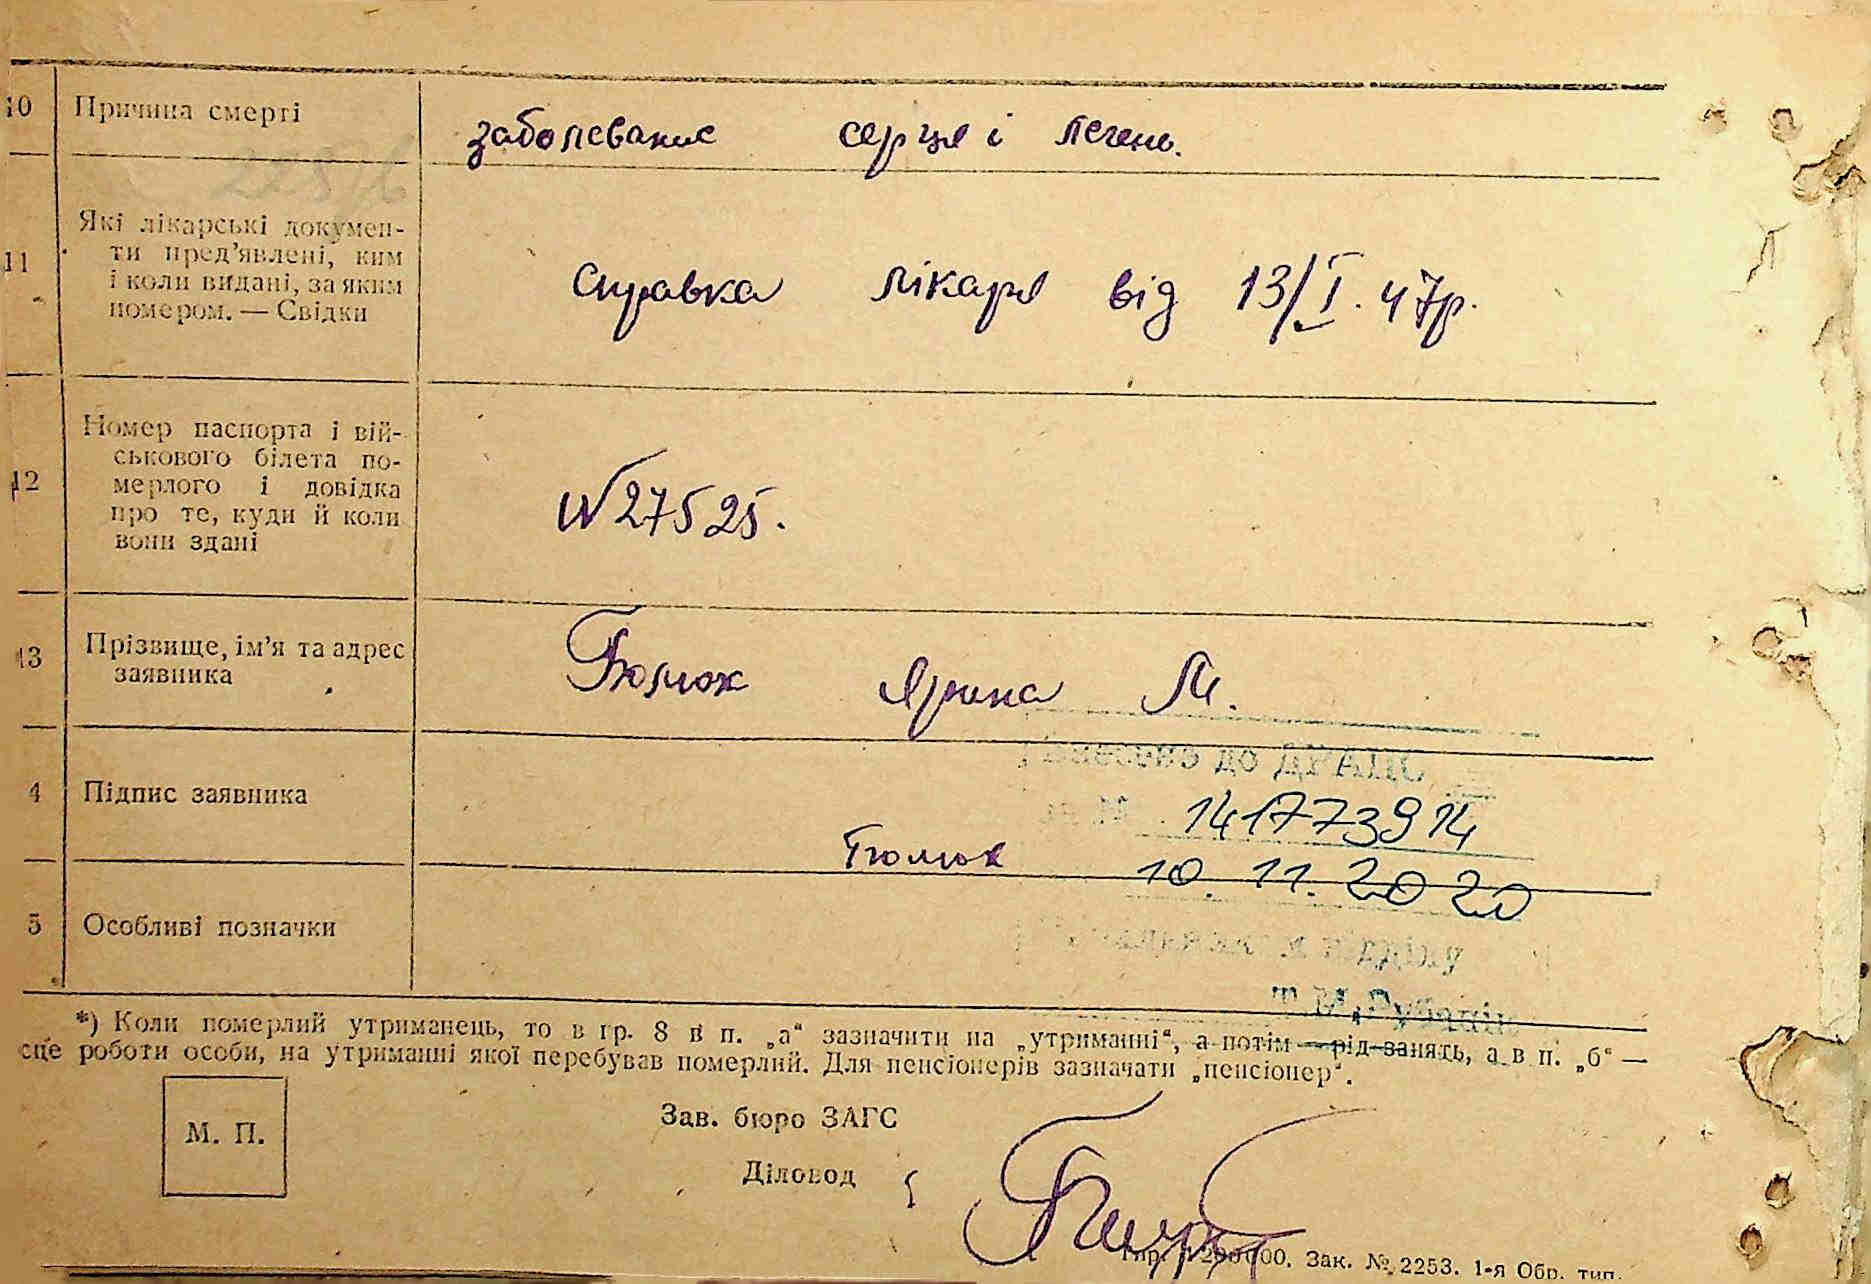 10 Причина смерті
заболевание серця і печень.
11 Які лікарські докумен-
ти пред'явлені, ким
і коли видані, за яким
номером. — Свідки
справка лікаря від 13/I. 47р.
12 Номер паспорта і вій-
ськового білета по-
мерлого і довідка
про те, куди й коли
вони здані
№27525.
13 Прізвище, ім'я та адрес
заявника
Ярина М.
Внесено до ДРАЦС
4 Підпис заявника
№ 141773914
10.11.2020
5 Особливі позначки
відділу
*) Коли померлий утриманець, то в гр. 8 в п. „а“ зазначити на „утриманні“, а потім — рід занять, а в п. „б“ —
сце роботи особи, на утриманні якої перебував померлий. Для пенсіонерів зазначати „пенсіонер“.
М. П.
Зав. бюро ЗАГС
Діловод
Зак. № 2253. 1-я Обр. тип.